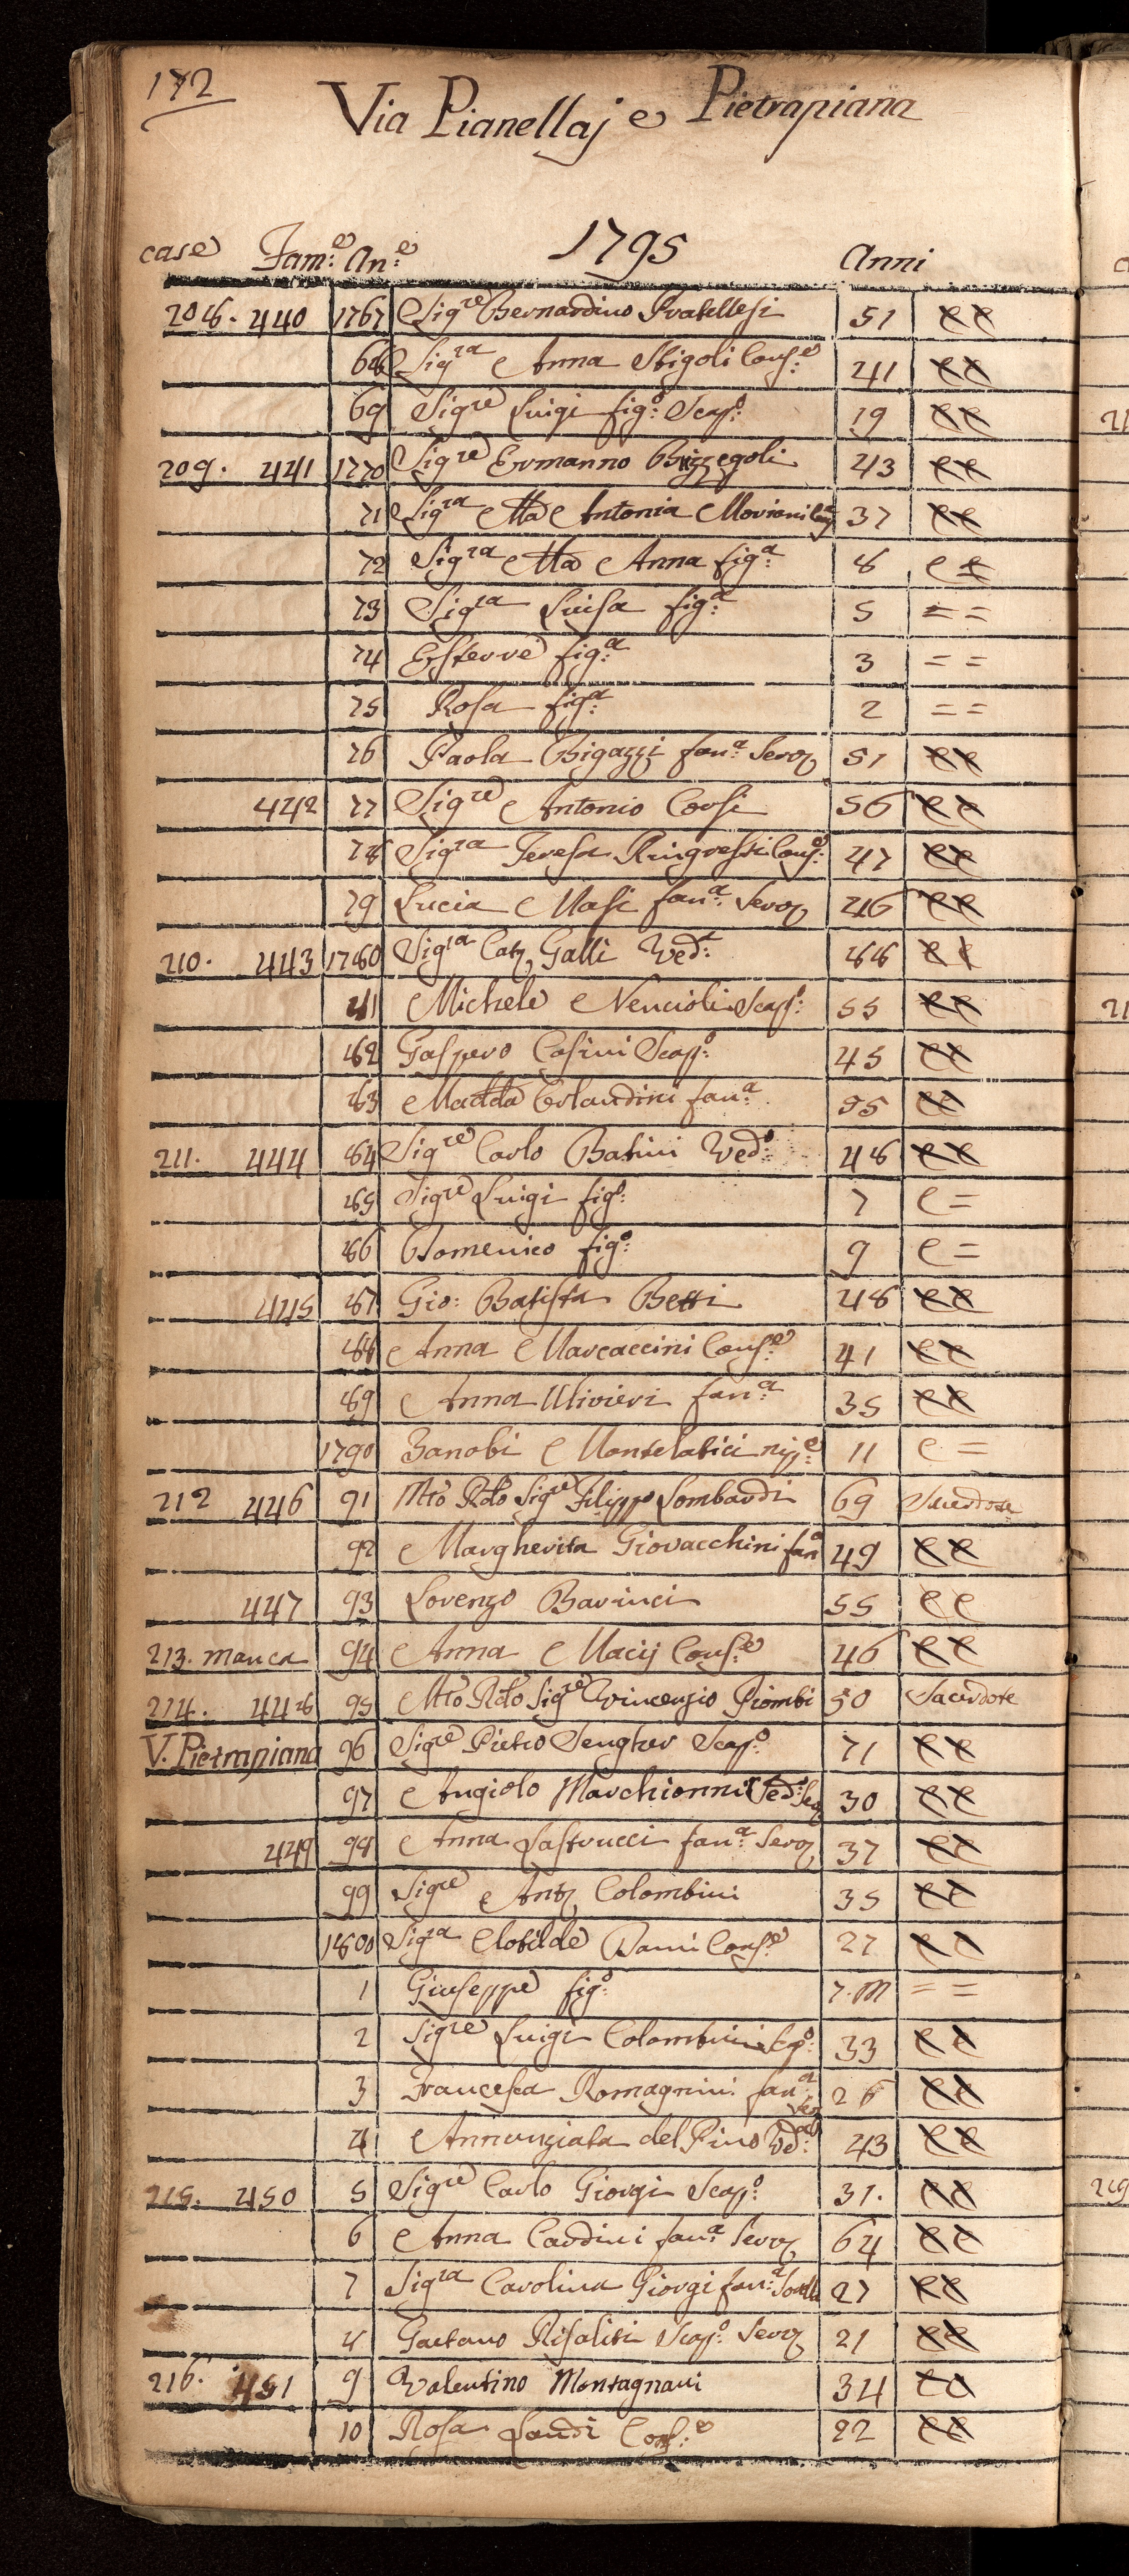 172
Via Pianellaj e Pietrapiana
case Fam:e An:e 1795 Anni
208. 440 1767 Sigre Bernardino Fratellesi 51 CC
68 Sigra Anna Stigoli Cons:e 41 CC
69 Sigre Luigi fig:o Scap:o 19 CC
209. 441 1770 Sigre Ermanno Brizzegoli 43 CC
71 Sigra Ma Antonia Moriani 37 CC
72 Sigra Ma Anna fig:a 8 C C
73 Sigra Luisa fig:a 5 = =
74 Esterre fig:a 3 = =
75 Rosa fig:a 2 = =
76 Paola Bigazzi fan:a Serv 51 CC
442 77 Sigre Antonio Corsi 56 CC
78 Sigra Teresa Ringressi Cons:e 47 CC
79 Lucia Masi fan:a Serv 46 CC
210. 443 1780 Sigra Cat Galli Ved:a 88 C C
81 Michele Nencioli Scap:o 55 CC
82 Gaspero Casini Scap:o 45 CC
83 Orlandini fan:a 55 CC
211. 444 84 Sigre Carlo Batini Ved:o 48 CC
85 Sigre Luigi fig:o 7 C =
86 Domenico fig:o 9 C =
445 87 Gio: Batista Betti 48 CC
88 Anna Marcaccini Cons:e 41 CC
89 Anna Ulivieri fan:a 35 CC
1790 Zanobi Montelatici nip:e 11 C =
212 446 91 Mto Rdo Sigre Filippo Lombardi 69 Sacerdote
92 Margherita Giovacchini fan:a 49 CC
447 93 Lorenzo Barinci 55 CC
213. manca 94 Anna Macij Cons:e 46 CC
214. 448 95 Mto Rdo Sigre Vincenzio Piombi 50 Sacerdote
V. Pietrapiana 96 Sigre Pietro Sengher Scap:o 71 CC
97 Angiolo Marchionni 30 CC
449 98 Anna Lastrucci fan:a Serv 37 CC
99 Sigre Ant Colombini 35 CC
1800 Sigra Clotilde Danni Cons:e 27 CC
1 Giuseppe fig:o 7. m = =
2 Sigre Luigi Colombini Scap:o 33 CC
3 Francesca Romagnini fan:a Ser 26 CC
4 Annunziata del Pino Ved: 43 CC
215. 450 5 Sigre Carlo Giorgi Scap:o 31. CC
6 Anna Cardini fan:a Serv 64 CC
7 Sigra Carolina Giorgi fan:a Sorella 27 CC
8 Gaetano Risaliti Scap:o Serv 21 CC
216. 451 9 Valentino Montagnani 34 CC
10 Rosa Landi Cons:e 22 CC